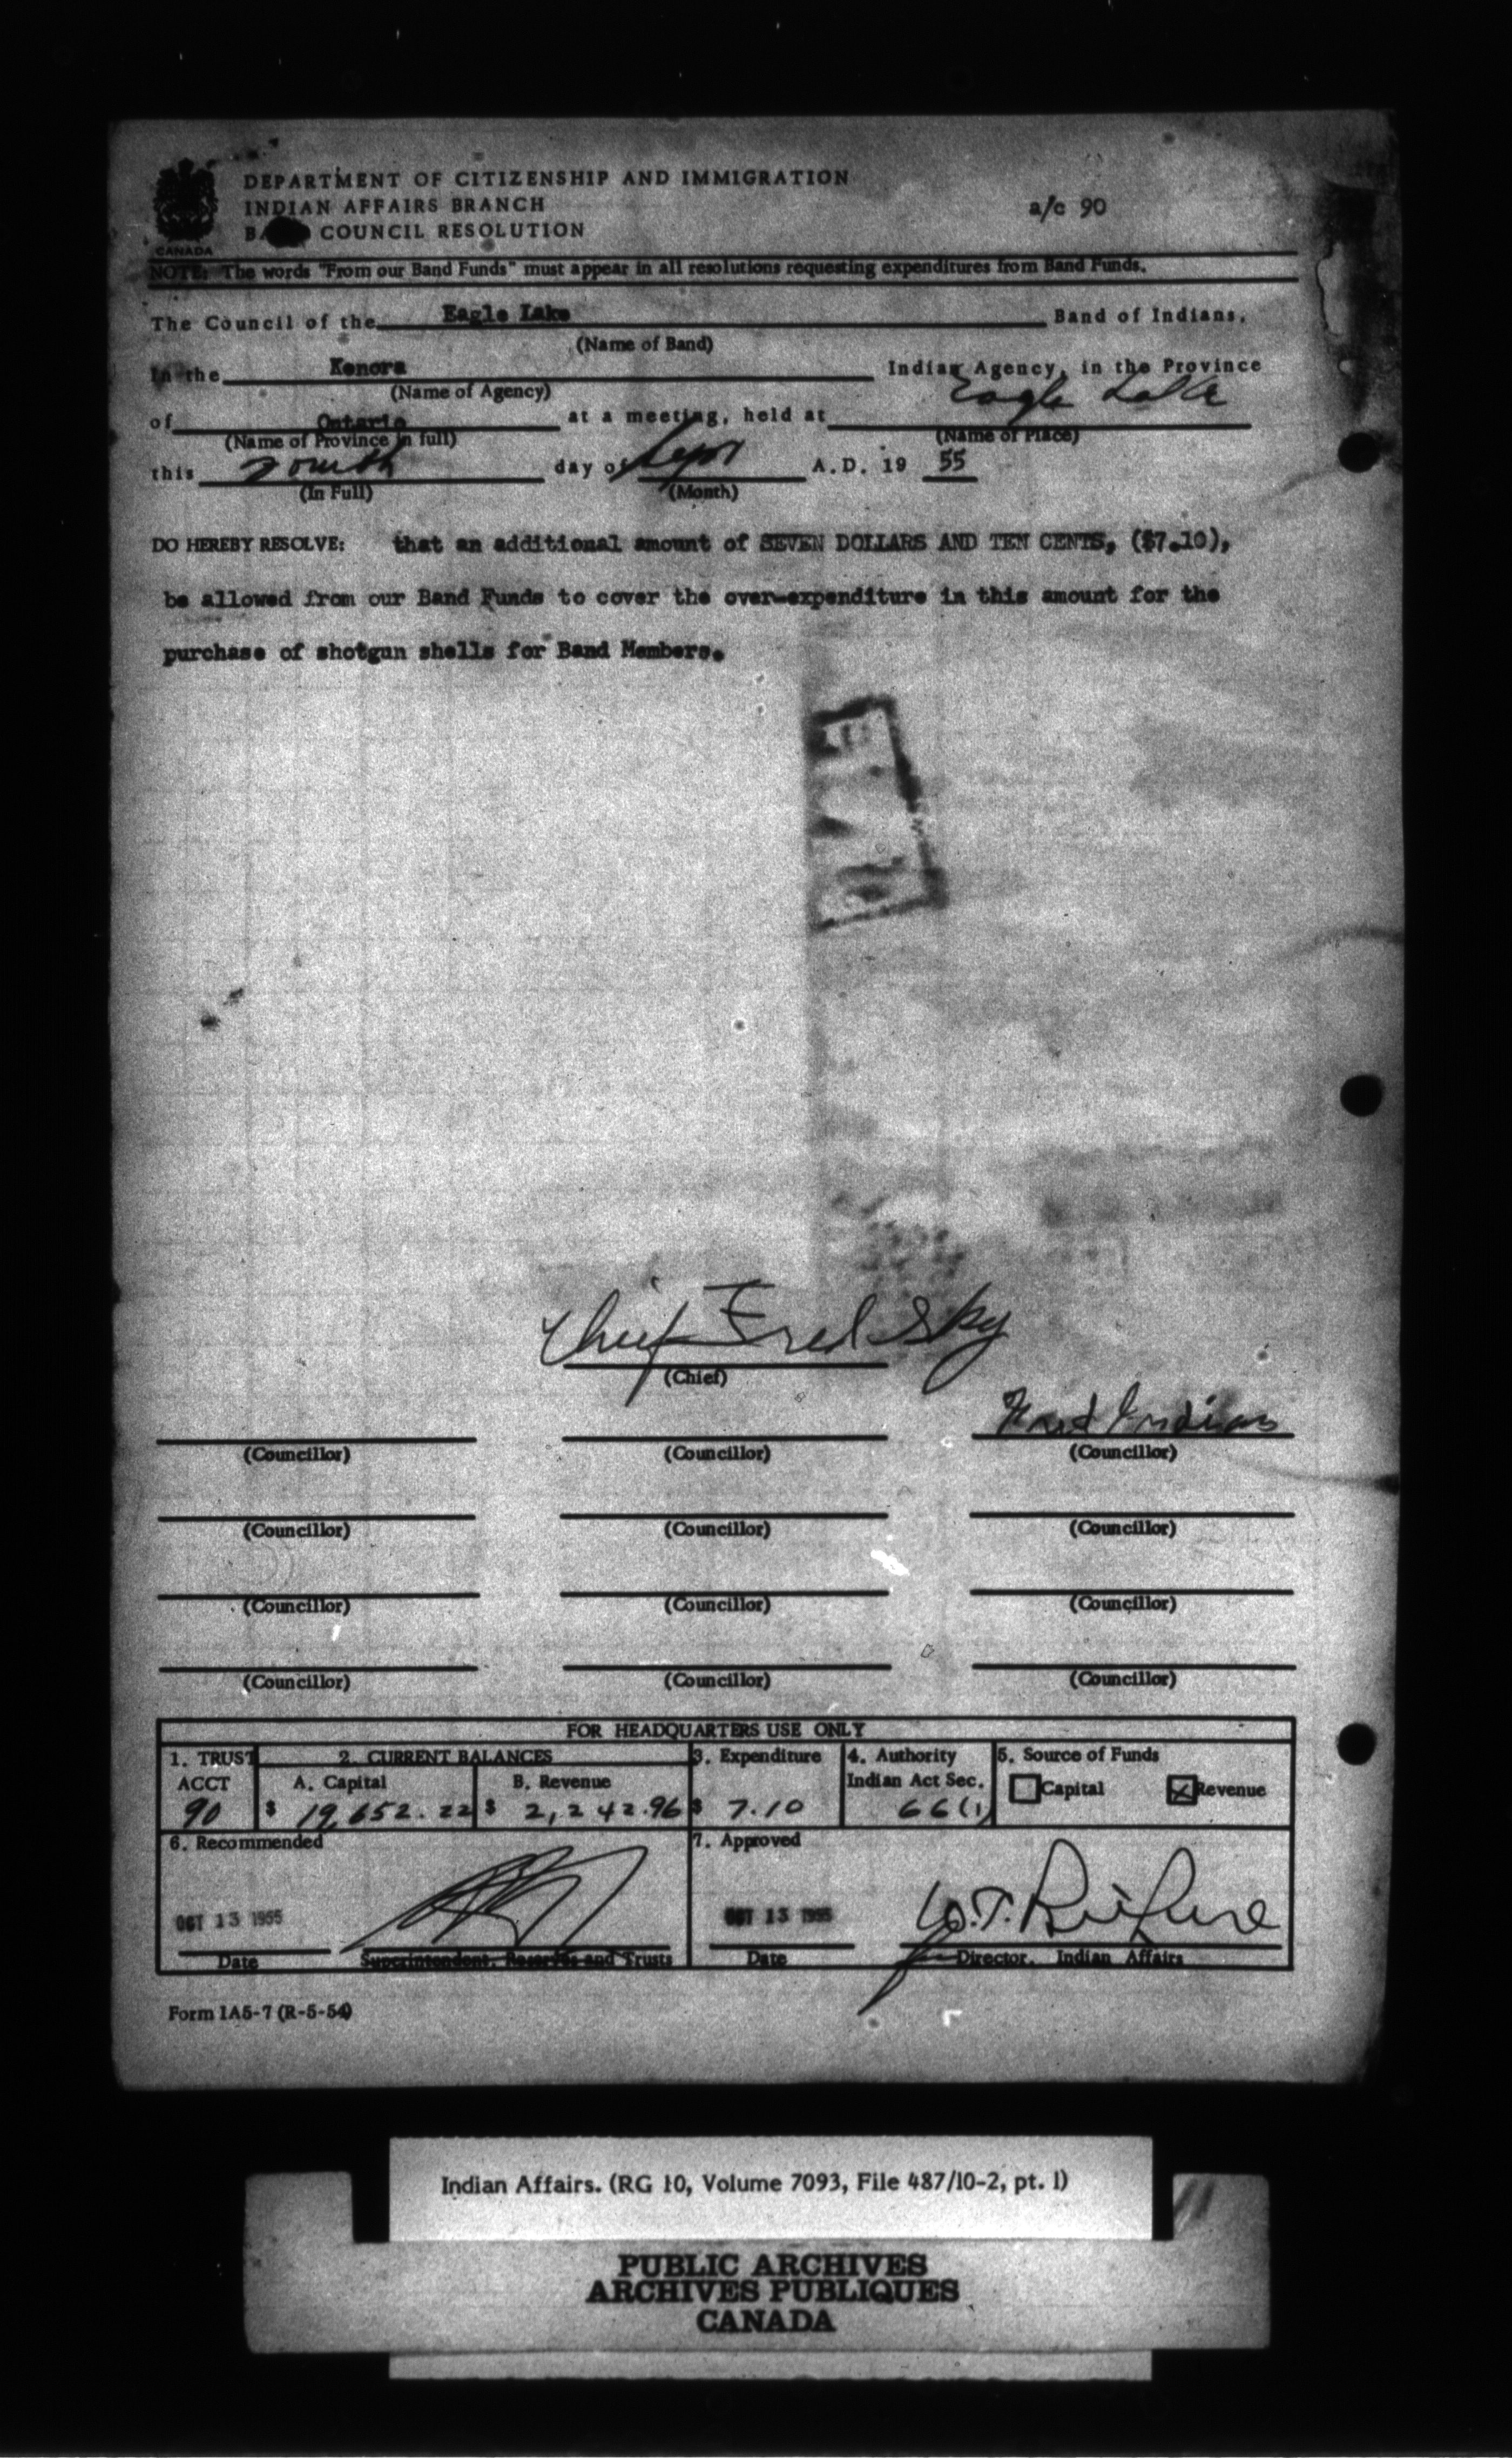 DEPARTMENT OF CITIZENSHIP AND IMMIGRATION
INDIAN AFFAIRS BRANCH
a/c 90
COUNCIL RESOLUTION
CANADA
NOTE: The words "From our Band Funds" must appear in all resolutions requesting expenditures from Band Funds.
The Council of the Eagle Lake Band of Indians,
(Name of Band)
In the Kenora Indian Agency, in the Province
(Name of Agency)
of Ontario at a meeting, held at Eagle Lake
(Name of Province in full) (Name of Place)
this Fourth day of Sept A.D. 19 55
(In Full) (Month)
DO HEREBY RESOLVE: that an additional amount of SEVEN DOLLARS AND TEN CENTS, ($7.10),
be allowed from our Band Funds to cover the over-expenditure in this amount for the
purchase of shotgun shells for Band Members.
Chief Fred Sky
(Chief)
Fred Indian
(Councillor) (Councillor) (Councillor)
(Councillor) (Councillor) (Councillor)
(Councillor) (Councillor) (Councillor)
(Councillor) (Councillor) (Councillor)
FOR HEADQUARTERS USE ONLY
1. TRUST 2. CURRENT BALANCES 3. Expenditure 4. Authority 5. Source of Funds
ACCT A. Capital B. Revenue Indian Act Sec. Capital Revenue
90 $ 19,652.22 $ 2,242.96 $ 7.10 66(1)
6. Recommended 7. Approved
OCT 13 1955 OCT 13 1955 W.T.
Date Superintendent, Reserves and Trusts Date Director, Indian Affairs
Form 1A5-7 (R-5-54)
Indian Affairs. (RG 10, Volume 7093, File 487/10-2, pt. 1)
PUBLIC ARCHIVES
ARCHIVES PUBLIQUES
CANADA